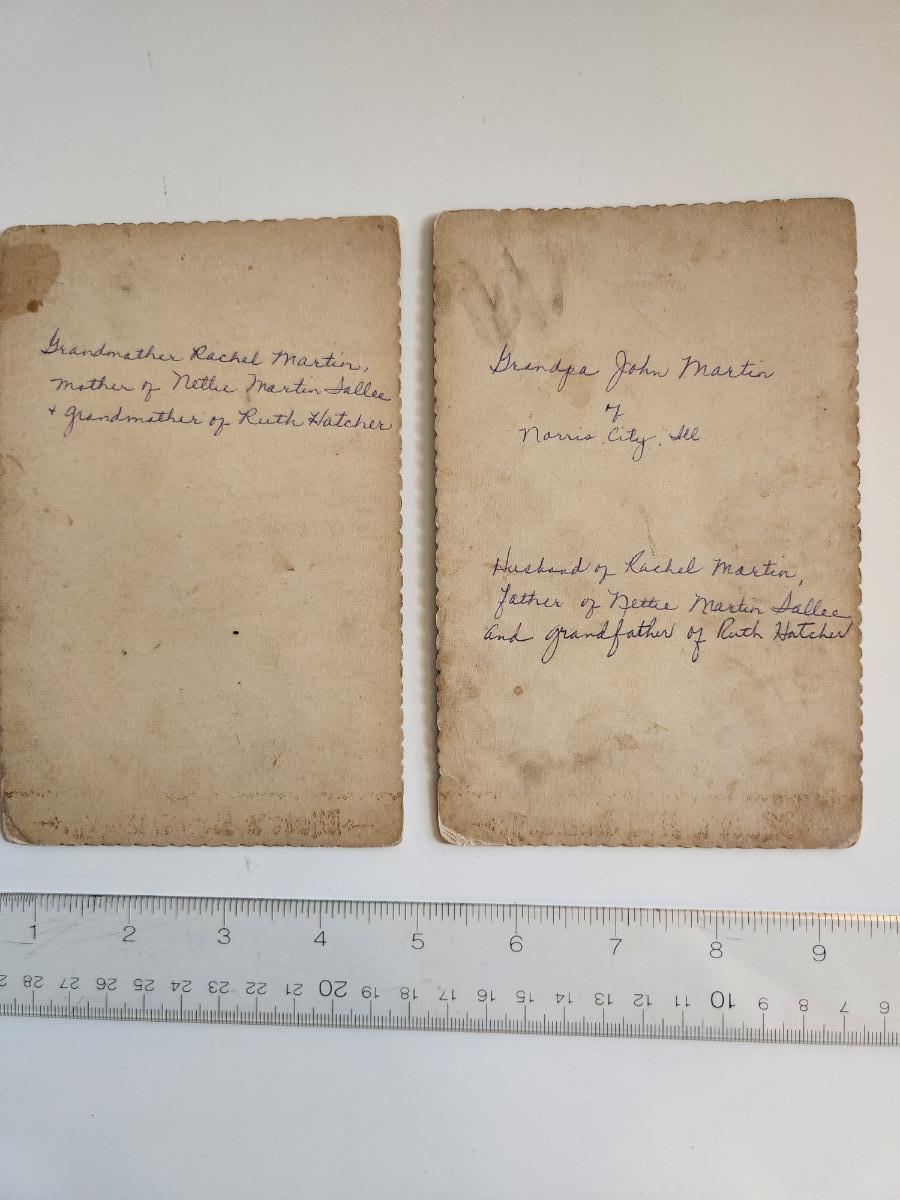 Grandmother Rachel Martin,
mother of Nettie Martin Sallee
+ grandmother of Ruth Hatcher
Grandpa John Martin
of
Norris City, Ill
Husband of Rachel Martin,
father of Nettie Martin Sallee
and grandfather of Ruth Hatcher
1 2 3 4 5 6 7 8 9
28 27 26 25 24 23 22 21 20 19 18 17 16 15 14 13 12 11 10 9 8 7 6